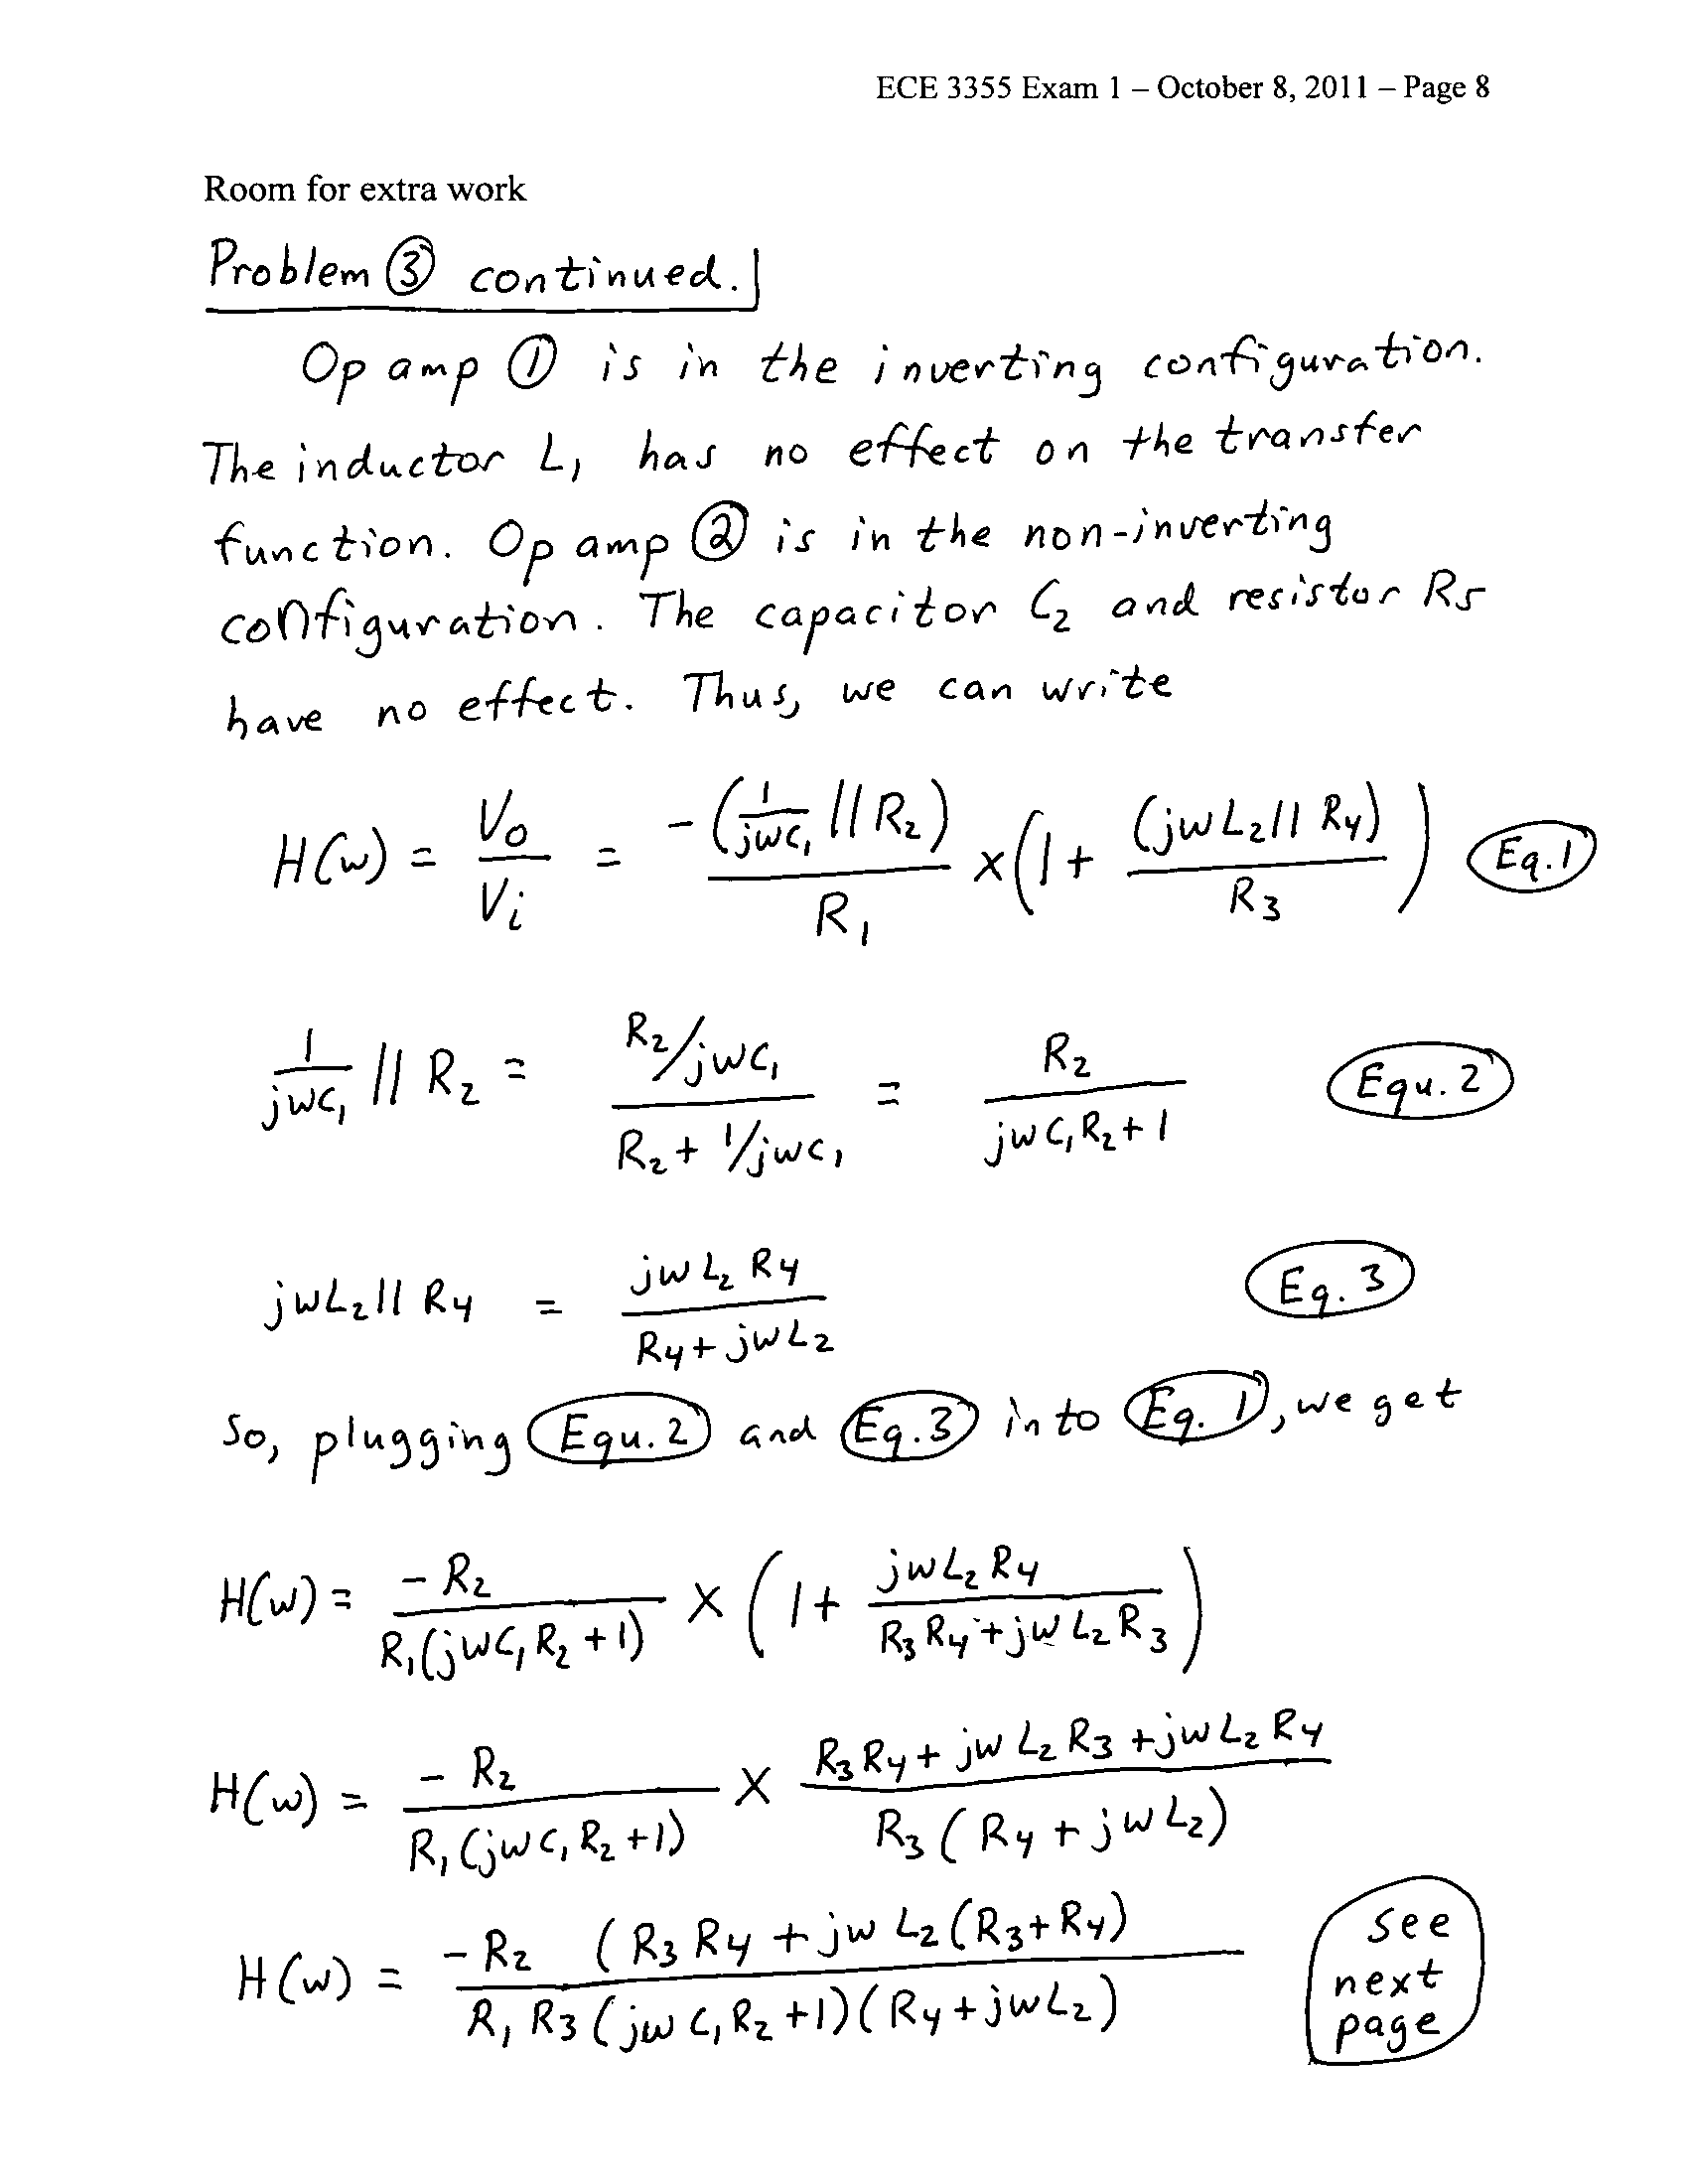 ECE 3355 Exam 1 – October 8, 2011 – Page 8
Room for extra work
Problem ③ continued.
Op amp ① is in the inverting configuration.
The inductor L₁ has no effect on the transfer
function. Op amp ② is in the non-inverting
configuration. The capacitor C₂ and resistor R5
have no effect. Thus, we can write
H(ω) = Vo/Vi = -(1/jωC₁ // R₂)/R₁ × (1 + (jωL₂ // R₄)/R₃) Eq.1
1/jωC₁ // R₂ = (R₂/jωC₁)/(R₂ + 1/jωC₁) = R₂/(jωC₁R₂ + 1) Equ. 2
jωL₂ // R₄ = jωL₂R₄/(R₄ + jωL₂) Eq. 3
So, plugging Equ. 2 and Eq.3 into Eq. 1, we get
H(ω) = -R₂/(R₁(jωC₁R₂ + 1)) × (1 + jωL₂R₄/(R₃R₄ + jωL₂R₃))
H(ω) = -R₂/(R₁(jωC₁R₂ + 1)) × (R₃R₄ + jωL₂R₃ + jωL₂R₄)/(R₃(R₄ + jωL₂))
H(ω) = -R₂ (R₃R₄ + jωL₂(R₃+R₄)/R₁R₃(jωC₁R₂ + 1)(R₄ + jωL₂)
see
next
page